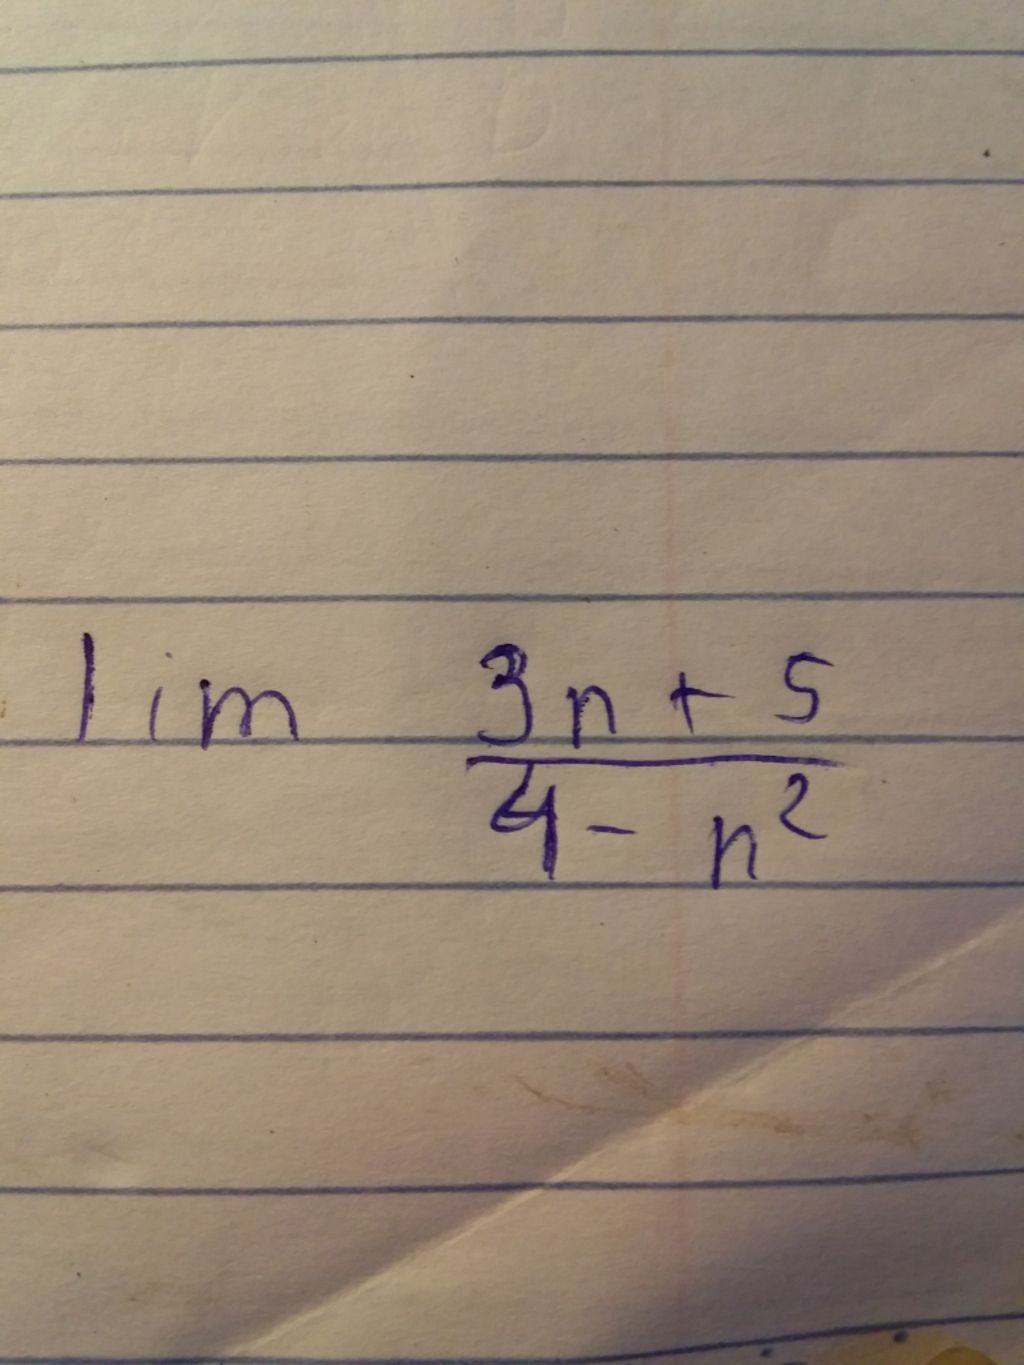 lim 3n + 5
4 - n²